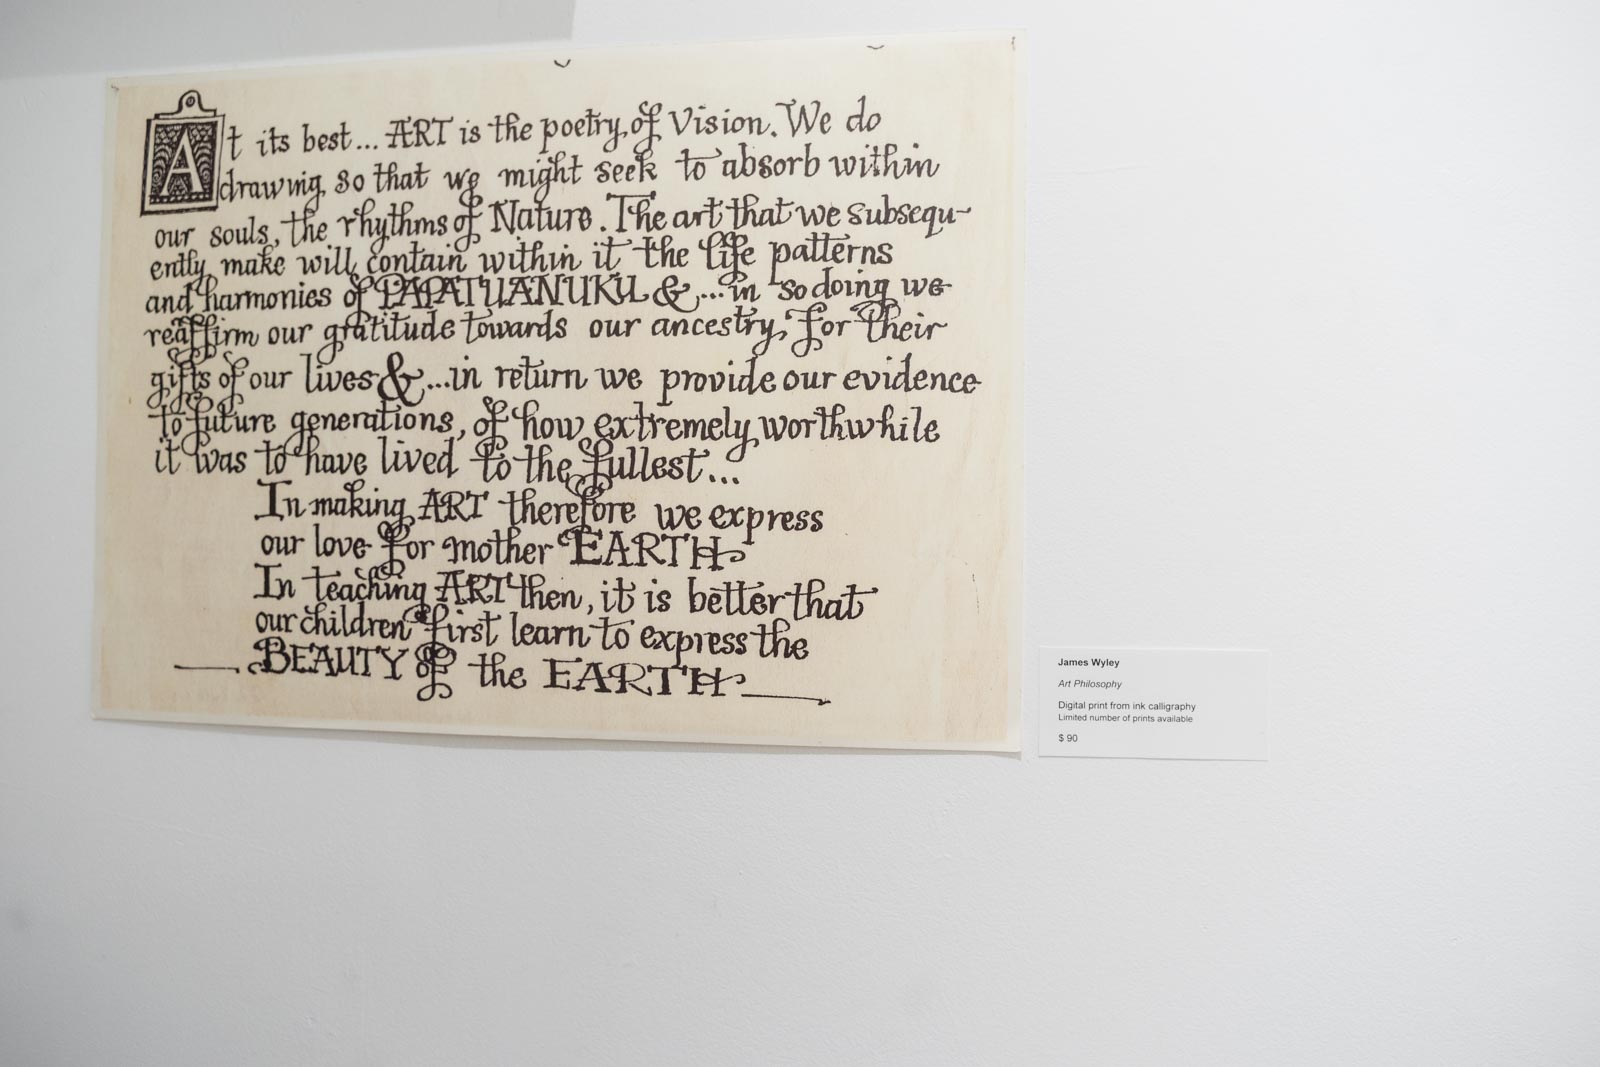 At its best... ART is the poetry of Vision. We do
drawing so that we might seek to absorb within
our souls, the rhythms of Nature. The art that we subsequ-
ently make will contain within it the life patterns
and harmonies of PAPATUANUKU &...in so doing we
reaffirm our gratitude towards our ancestry, for their
gifts of our lives &...in return we provide our evidence
to future generations, of how extremely worthwhile
it was to have lived to the fullest...
In making ART therefore we express
our love for mother EARTH
In teaching ART then, it is better that
our children first learn to express the
BEAUTY of the EARTH
James Wyley
Art Philosophy
Digital print from ink calligraphy
Limited number of prints available
$ 90